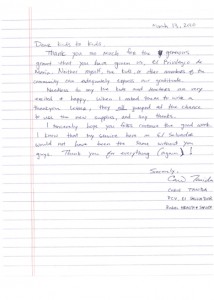 March 13, 2010
Dear Kids to Kids,
Thank you so much for the generous
grant that you have given us, El
Neither myself, the kids or other members of the
community can adequately express our gratitude.
Needless to say the kids and teachers are very
excited & happy. When I asked them to write a
thank you letter, they all jumped at the chance
to use the new supplies, and say thanks.
I sincerely hope you folks continue the good work.
I know that my service here in El Salvador
would not have been the same without you
guys. Thank you for everything (again)!
Sincerely,
PCV, El Salvador